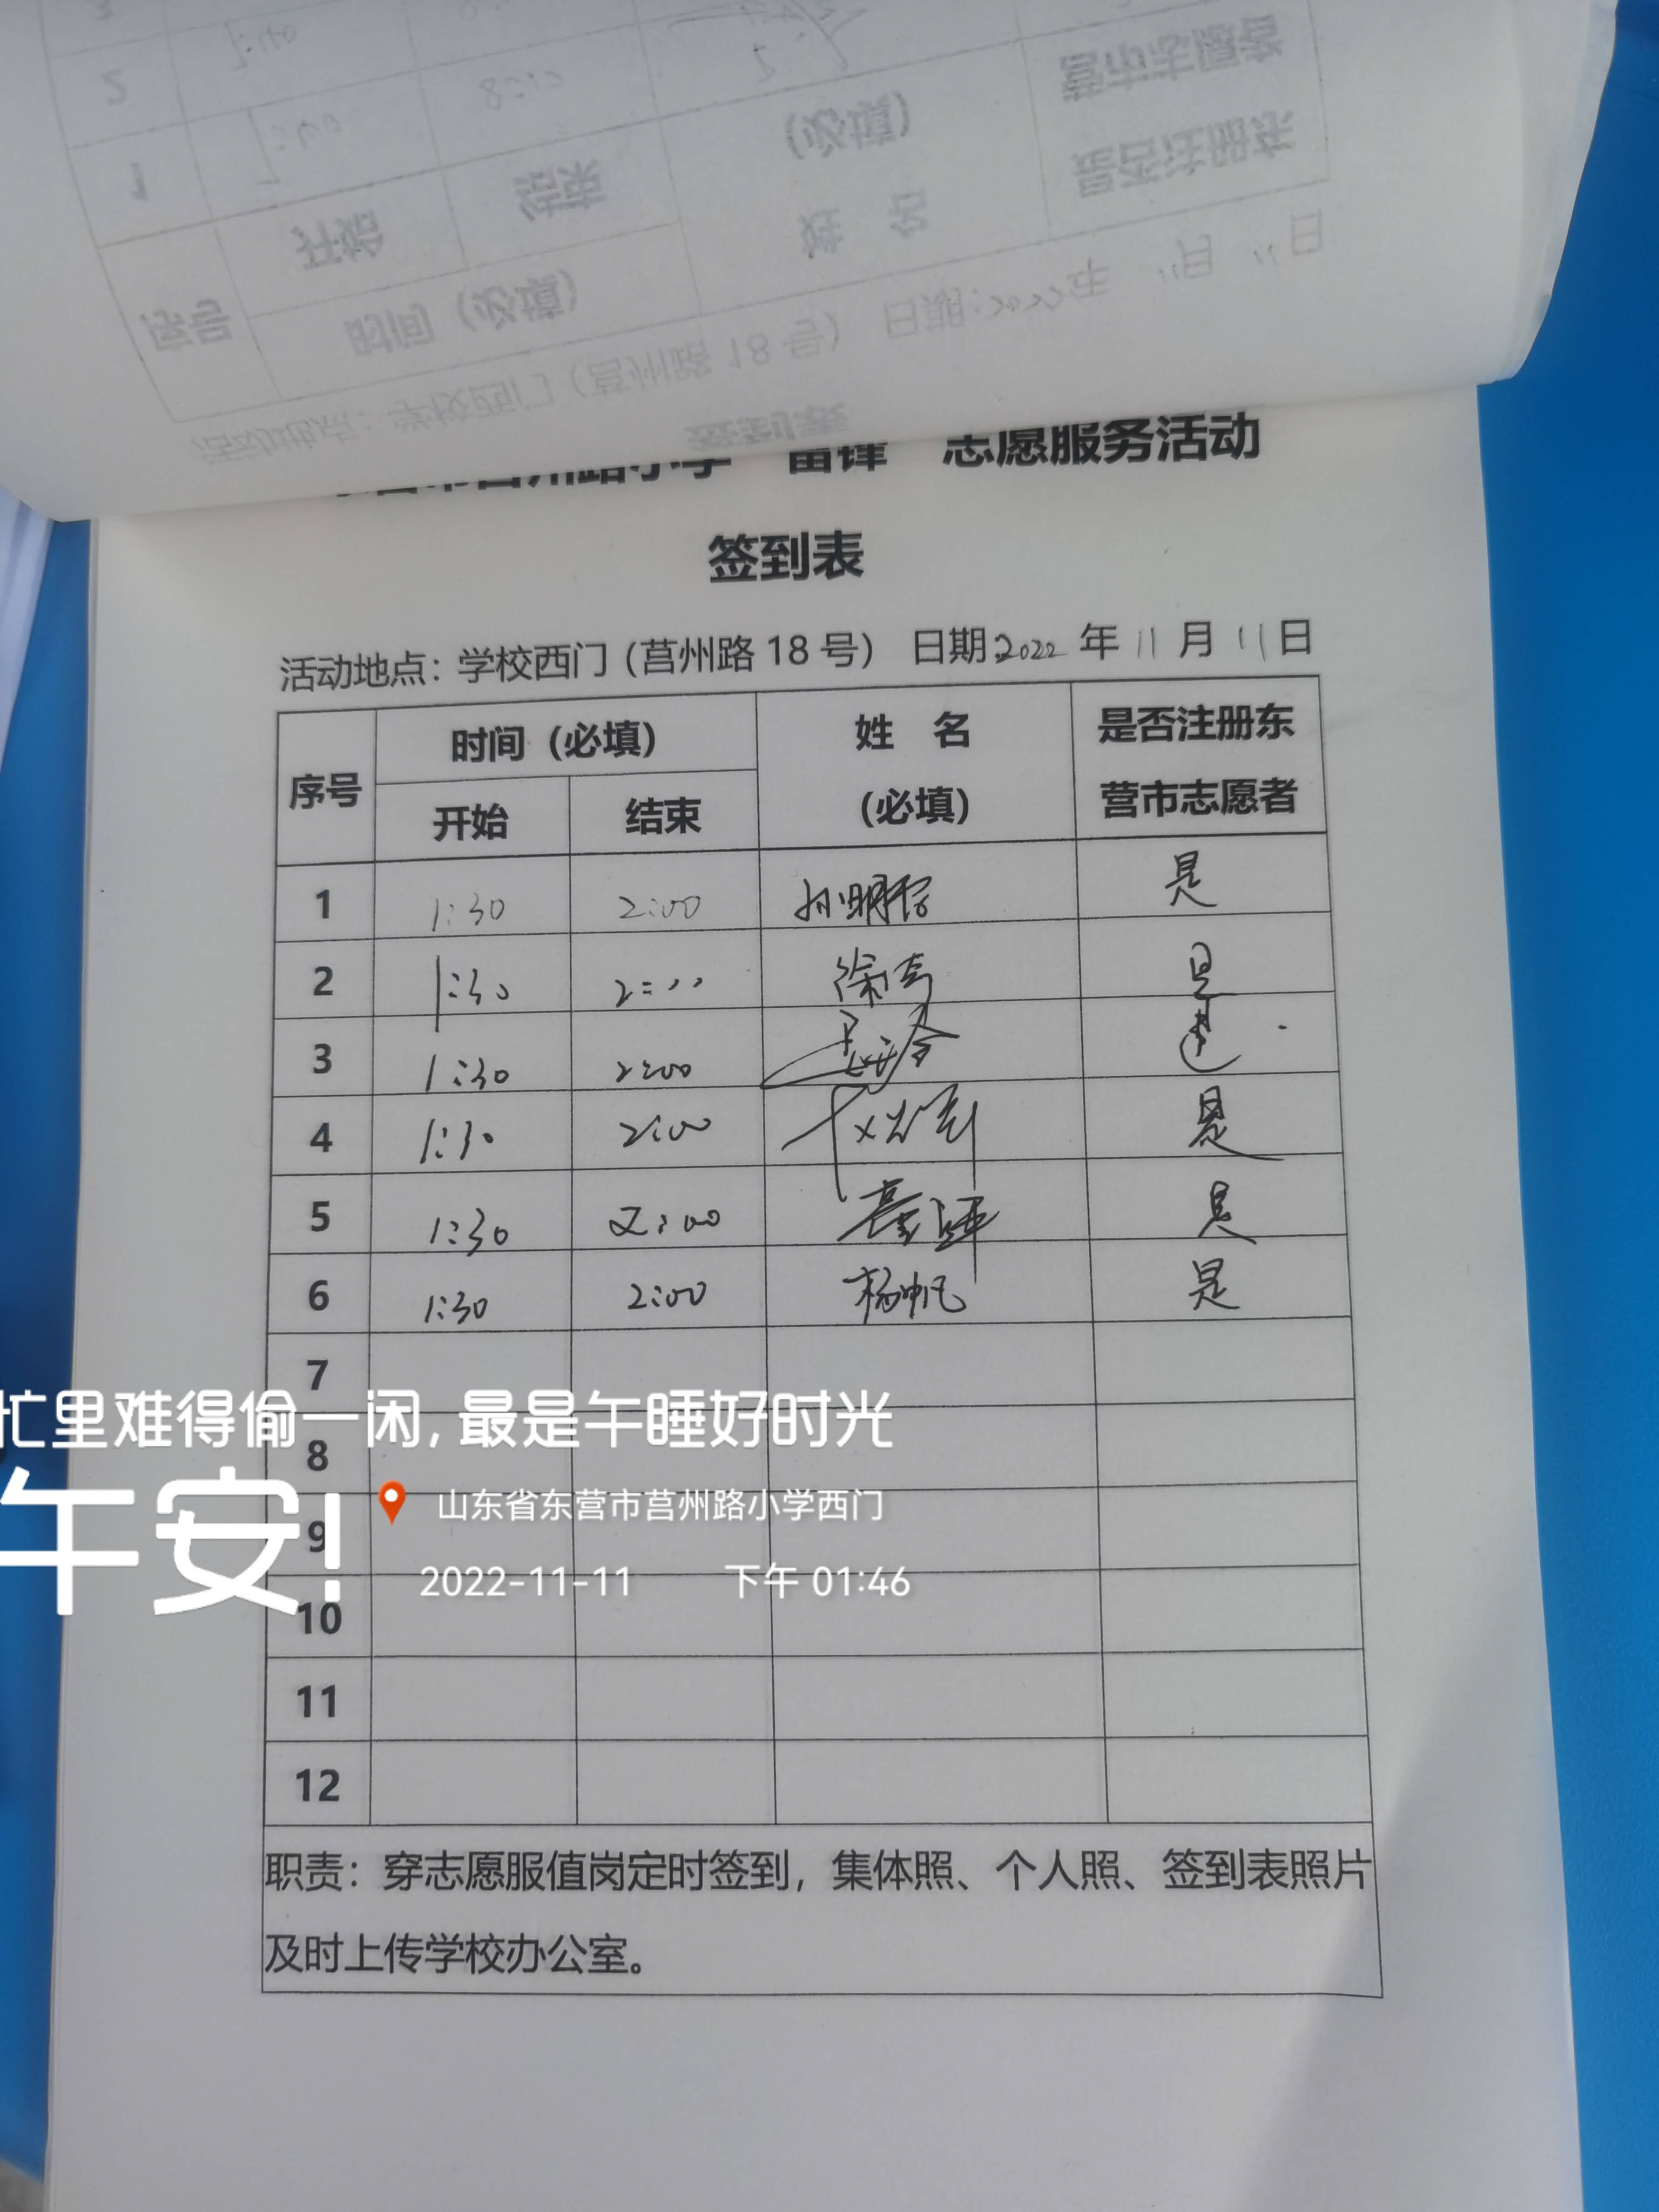 志愿服务活动
签到表
活动地点：学校西门（莒州路 18 号） 日期:2022 年 11 月 11 日
序号 时间（必填） 姓 名 （必填） 是否注册东营市志愿者
开始 结束
1 1:30 2:00 是
2 1:30 2:00 徐亮 是
3 1:30 2:00 是
4 1:30 2:00 是
5 1:30 2:00 是
6 1:30 2:00 杨帆 是
7
忙里难得偷一闲，最是午睡好时光
8
午安！
山东省东营市莒州路小学西门
9
2022-11-11 下午 01:46
10
11
12
职责：穿志愿服值岗定时签到，集体照、个人照、签到表照片
及时上传学校办公室。